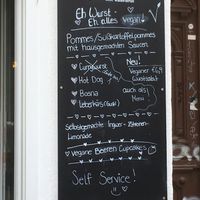 Eh Wurst-
Eh alles vegan!
Pommes/Süßkartoffelpommes
mit hausgemachten Saucen
Currywurst
Hot Dog
Bosna
Leberkäs
Neu!
Veganer
auch als
Menü
Selbstgemachte Ingwer-Zitronen-
Limonade
Vegane Beeren Cupcakes
Self Service!